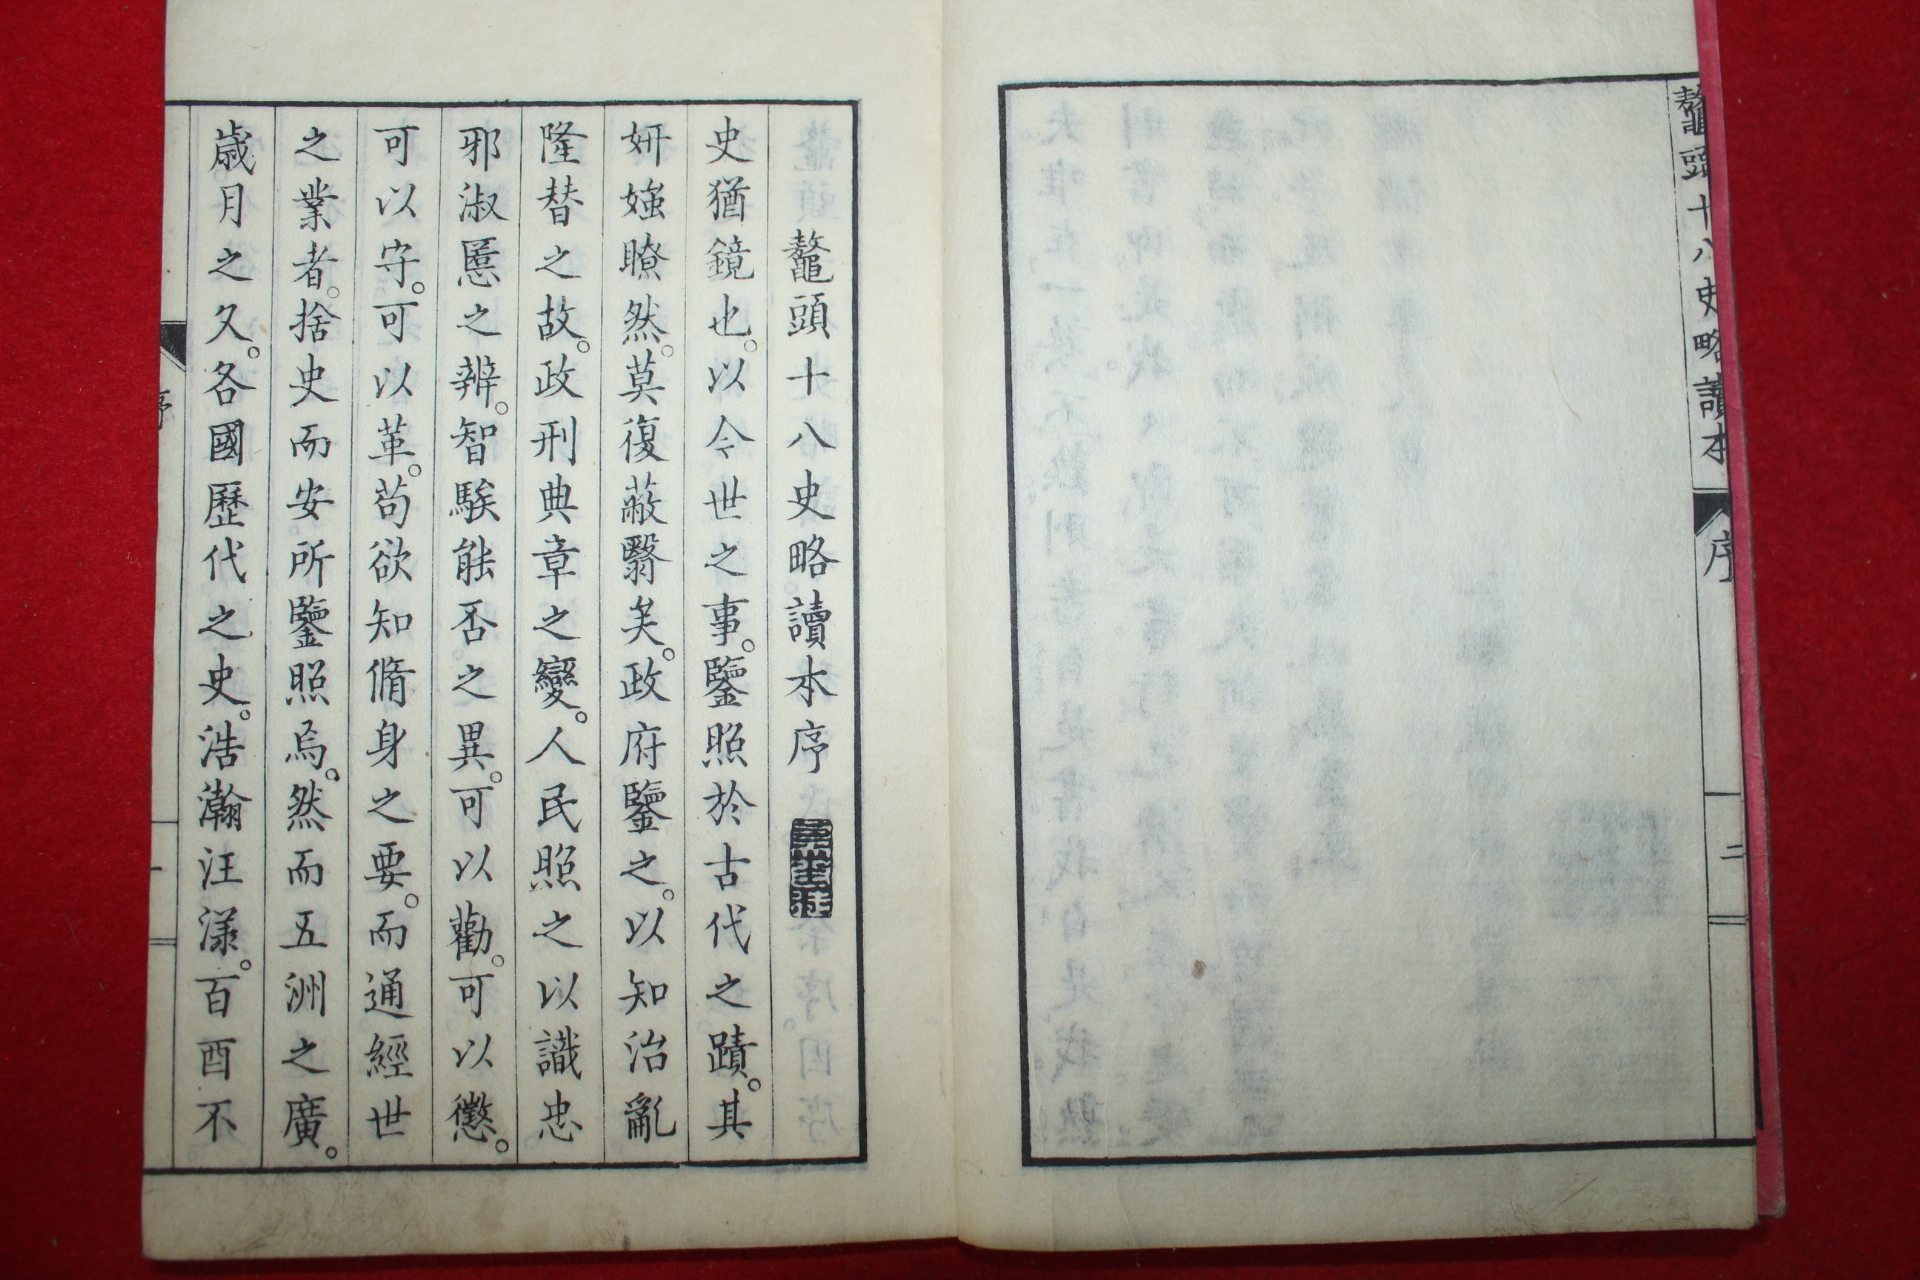 鼇頭十八史略讀本
序
二
鼇頭十八史略讀本序
史猶鏡也。以今世之事。鑒照於古代之蹟。其
妍媸瞭然。莫復蔽翳矣。政府鑒之。以知治亂
隆替之故。政刑典章之變。人民照之以識忠
邪淑慝之辨。智騃能否之異。可以勸。可以懲。
可以守。可以革。苟欲知脩身之要。而通經世
之業者。捨史而安所鑒照焉。然而五洲之廣。
歳月之久。各國歷代之史。浩瀚汪漾。百酉不
序
一